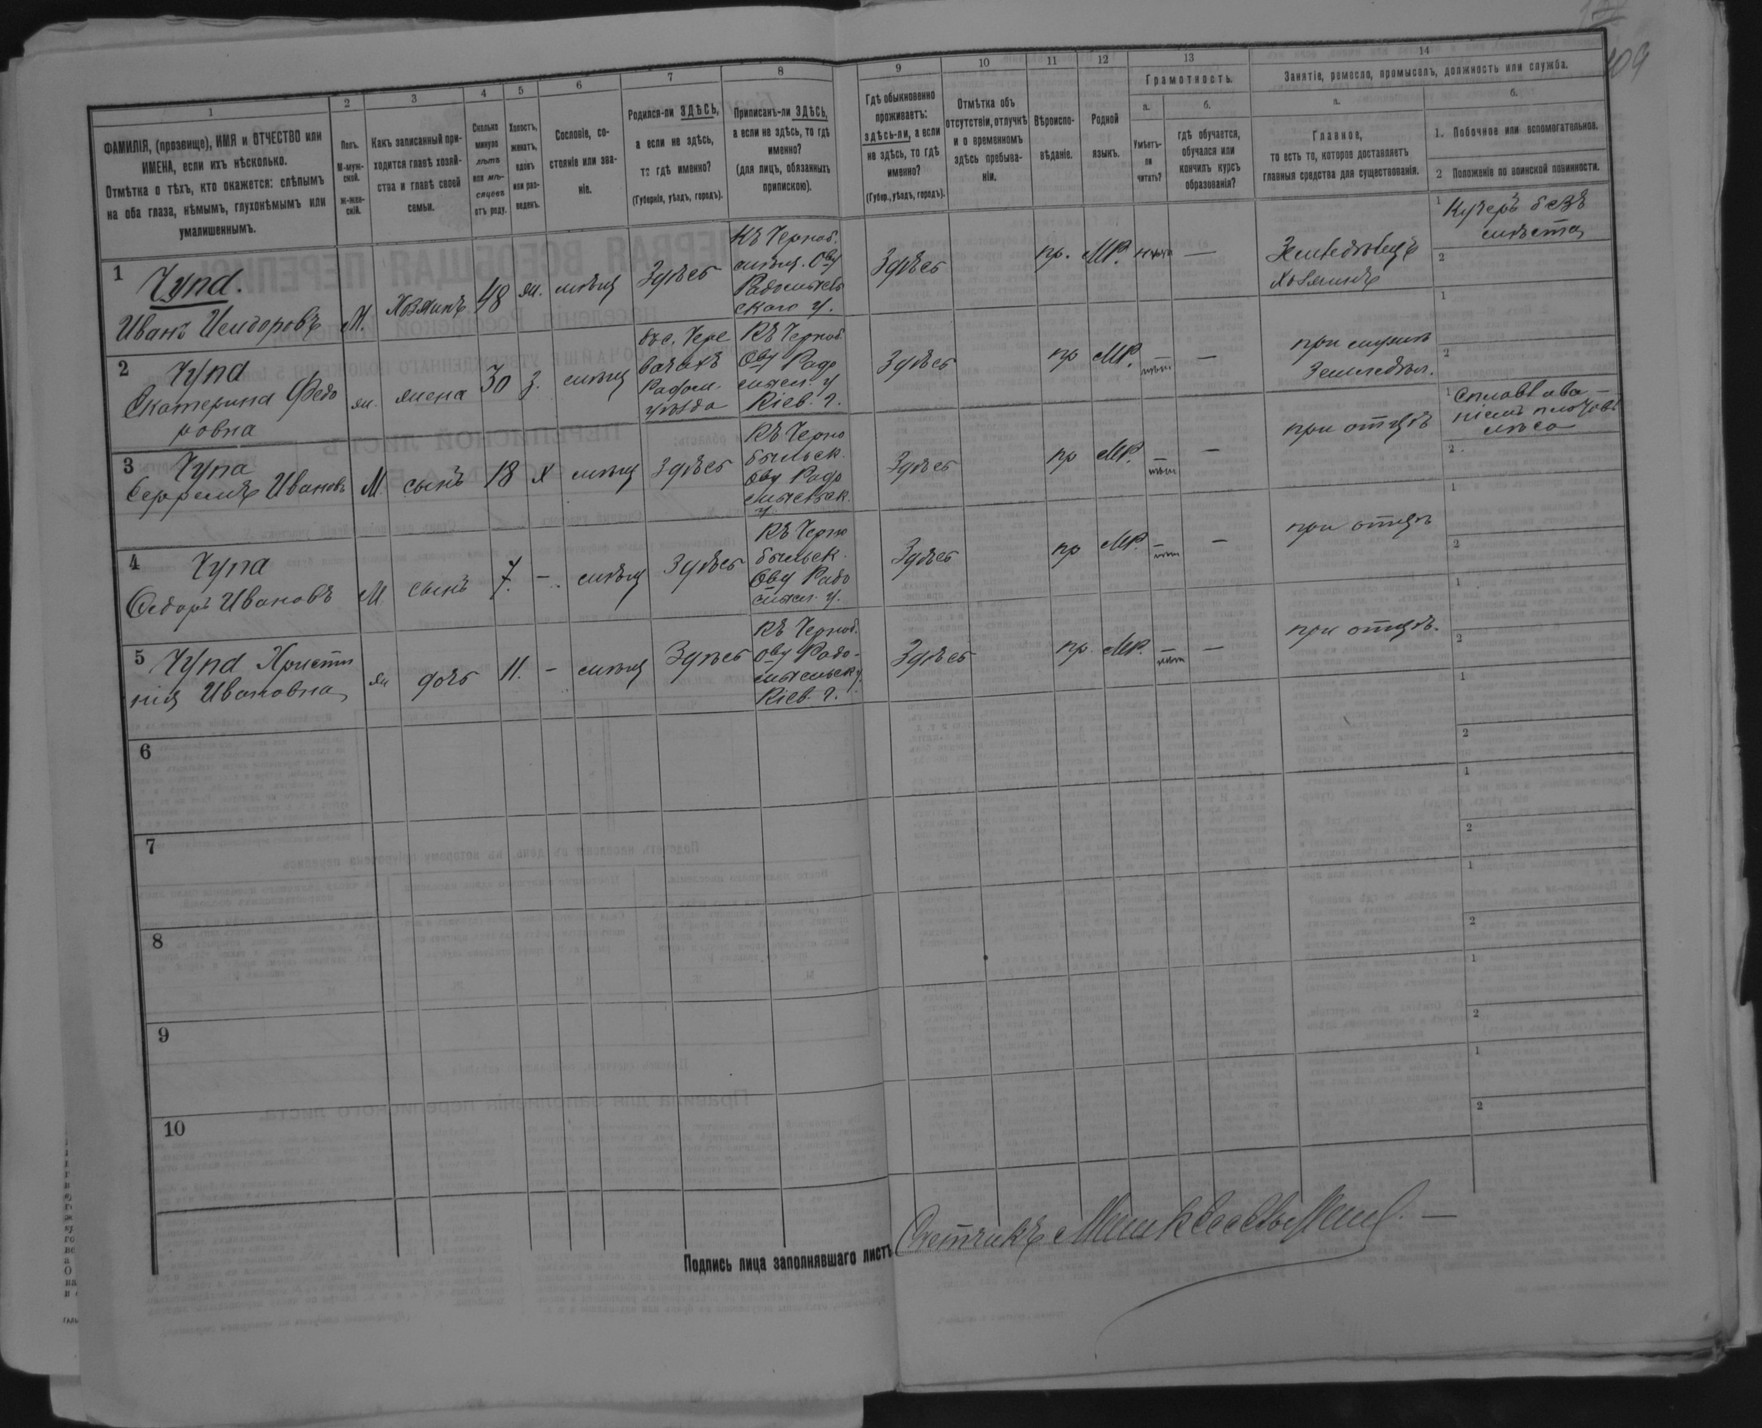 103
1
2
3
4
5
6
7
8
9
10
11
12
13
14
ФАМИЛІЯ, (прозвище), ИМЯ и ОТЧЕСТВО или
ИМЕНА, если ихъ нѣсколько.
Отмѣтка о тѣхъ, кто окажется: слѣпымъ
на оба глаза, нѣмымъ, глухонѣмымъ или
умалишеннымъ.
Полъ.
М-муж-
ской.
ж-жен-
скій.
Какъ записанный при-
ходится главѣ хозяй-
ства и главѣ своей
семьи.
Сколько
минуло
лѣтъ
или мѣ-
сяцевъ
отъ роду.
Холостъ,
женатъ,
вдовъ
или раз-
веденъ.
Сословіе, со-
стояніе или зва-
ніе.
Родился-ли ЗДѢСЬ,
а если не здѣсь,
то гдѣ именно?
(Губернія, уѣздъ, городъ).
Приписанъ-ли ЗДѢСЬ,
а если не здѣсь, то гдѣ
именно?
(для лицъ, обязанныхъ
припискою).
Гдѣ обыкновенно
проживаетъ:
здѣсь-ли, а если
не здѣсь, то гдѣ
именно?
(Губер., уѣздъ, городъ).
Отмѣтка объ
отсутствіи, отлучкѣ
и о временномъ
здѣсь пребыва-
ніи.
Вѣроиспо-
вѣданіе.
Родной
языкъ.
Грамотность.
а.
Умѣетъ-
ли
читать?
б.
гдѣ обучается,
обучался или
кончилъ курсъ
образованія?
Занятіе, ремесло, промыселъ, должность или служба.
а.
Главное,
то есть то, которое доставляетъ
главныя средства для существованія.
б.
1. Побочное или вспомогательное.
2 Положеніе по воинской повинности.
1
Чупа.
Иванъ Исидоровъ
М.
Хозяинъ
48
ж.
мѣщ
Здѣсь
Къ Черноб.
мѣщ. Обу
Радомысль
скаго у.
Здѣсь
пр.
МР.
нѣтъ
—
Земледѣлецъ
Хозяинъ
1
Кучеръ безъ
мѣста
2
2
Чупа
Екатерина Федо
ровна
ж.
жена
30
з.
мѣщ
въ с. Чере
вачахъ
Радом.
уѣзда
Къ Черноб.
Обу Радо
мысл. у
Кіев. г.
Здѣсь
пр
МР.
—
нѣтъ
—
при мужѣ
Земледѣл.
1
2
3
Чупа
Ефремъ Ивановъ
М
сынъ
18
х
мѣщ
Здѣсь
Къ Черно
быльск.
Обу Радо
мысльск.
у
Здѣсь
пр
МР.
—
нѣтъ
—
при отцѣ
1
Сплавъ
2
4
Чупа
Федоръ Ивановъ
М
сынъ
7.
—
мѣщ
Здѣсь
Къ Черно
быльск.
Обу Радо
мысл. у.
Здѣсь
пр
МР.
—
нѣтъ
—
при отцѣ
1
2
5
Чупа Христи
нія Ивановна
ж
дочь
11.
—
мѣщ
Здѣсь
Къ Черноб.
Обу Радо-
мысльск у
Кіев. г.
Здѣсь
пр.
МР.
—
нѣтъ
—
при отцѣ.
1
2
6
1
2
7
1
2
8
1
2
9
1
2
10
1
2
Подпись лица заполнявшаго листъ
Счетчикъ